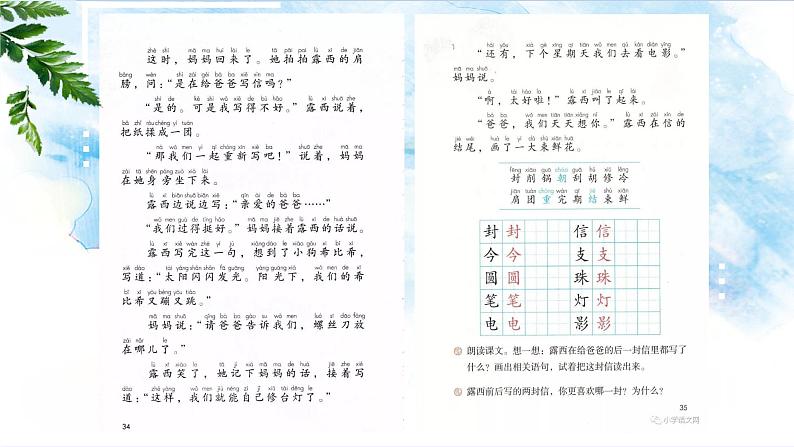 zhè shí mā ma huí lái le tā pāi pāi lù xī de jiān
这时，妈妈回来了。她拍拍露西的肩
bǎng wèn shì zài gěi bà ba xiě xìn ma
膀，问：“是在给爸爸写信吗？”
shì de kě shì wǒ xiě de bù hǎo lù xī shuō zhe
“是的。可是我写得不好。”露西说着，
bǎ zhǐ róu chéng yì tuán
把纸揉成一团。
nà wǒ men yì qǐ chóng xīn xiě ba shuō zhe mā ma
“那我们一起重新写吧！”说着，妈妈
zài tā shēn páng zuò xià lái
在她身旁坐下来。
lù xī biān shuō biān xiě qīn ài de bà ba
露西边说边写：“亲爱的爸爸……”
wǒ men guò de tǐng hǎo mā ma jiē zhe lù xī de huà shuō
“我们过得挺好。”妈妈接着露西的话说。
lù xī xiě wán zhè yí jù xiǎng dào le xiǎo gǒu xī bǐ xī
露西写完这一句，想到了小狗希比希，
xiě dào tài yáng shǎn shǎn fā guāng yáng guāng xià wǒ men de xī
写道：“太阳闪闪发光。阳光下，我们的希
bǐ xī yòu bèng yòu tiào
比希又蹦又跳。”
mā ma shuō qǐng bà ba gào su wǒ men luó sī dāo fàng
妈妈说：“请爸爸告诉我们，螺丝刀放
zài nǎ er le
在哪儿了。”
lù xī xiào le tā jì xià mā ma de huà jiē zhe xiě
露西笑了，她记下妈妈的话，接着写
dào zhè yàng wǒ men jiù néng zì jǐ xiū tái dēng le
道：“这样，我们就能自己修台灯了。”
34
hái yǒu xià gè xīng qī tiān wǒ men qù kàn diàn yǐng
“还有，下个星期天我们去看电影。”
mā ma shuō
妈妈说。
“啊，太好啦！”露西叫了起来。
“爸爸，我们天天想你。”露西在信的
jié wěi huà le yí dà shù xiān huā
结尾，画了一大束鲜花。
fēng xiāo guō cháo guā hú xiū lěng
封削锅朝刮胡修冷
jiān tuán chóng wán qī jié shù xiān
肩团重完期结束鲜
封封 信信
今今 支支
圆圆 珠珠
笔笔 灯灯
电电 影影
朗读课文。想一想：露西在给爸爸的后一封信里都写了
什么？画出相关语句，试着把这封信读出来。
露西前后写的两封信，你更喜欢哪一封？为什么？
35
小学语文网